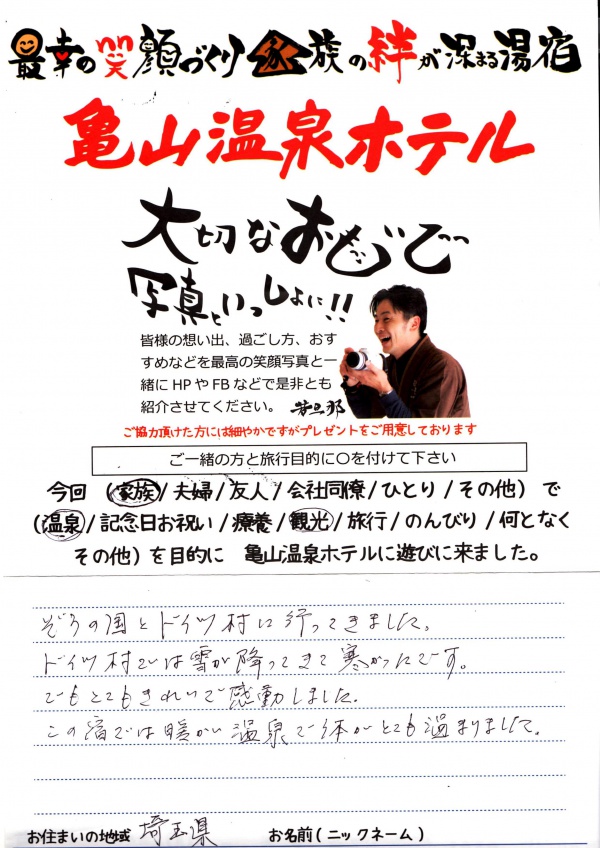 最幸の笑顔づくり 家族の絆が深まる湯宿
亀山温泉ホテル
大切なおもいで
写真といっしょに!!
皆様の想い出、過ごし方、おす
すめなどを最高の笑顔写真と一
緒にHPやFBなどで是非とも
紹介させてください。 若旦那
ご協力頂けた方には細やかですがプレゼントをご用意しております
ご一緒の方と旅行目的に〇を付けて下さい
今回 (家族/夫婦/友人/会社同僚/ひとり/その他) で
(温泉/記念日お祝い/療養/観光/旅行/のんびり/何となく
その他) を目的に 亀山温泉ホテルに遊びに来ました。
ぞうの国とドイツ村に行ってきました。
ドイツ村では雪が降ってきて寒かったです。
でもとてもきれいで感動しました。
この宿では暖かい温泉で体がとても温まりました。
お住まいの地域 埼玉県 お名前(ニックネーム)